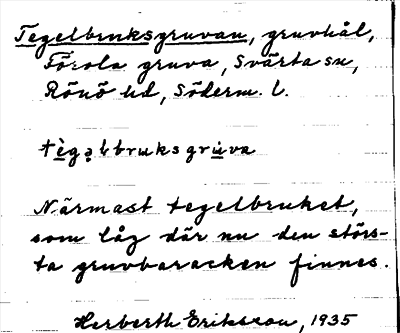 Tegelbruksgruvan, gruvhål,
Förola gruva, Svärta sn,
Rönö hd, Söderm. l.
tègəlbruksgrùva
Närmast tegelbruket,
som låg där nu den störs-
ta gruvbaracken finnes.
Herberth Eriksson, 1935